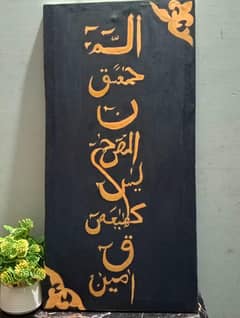 الٓمٓ
حٰمٓعٓسٓقٓ
ن
يس
كهيعص
ق
امين